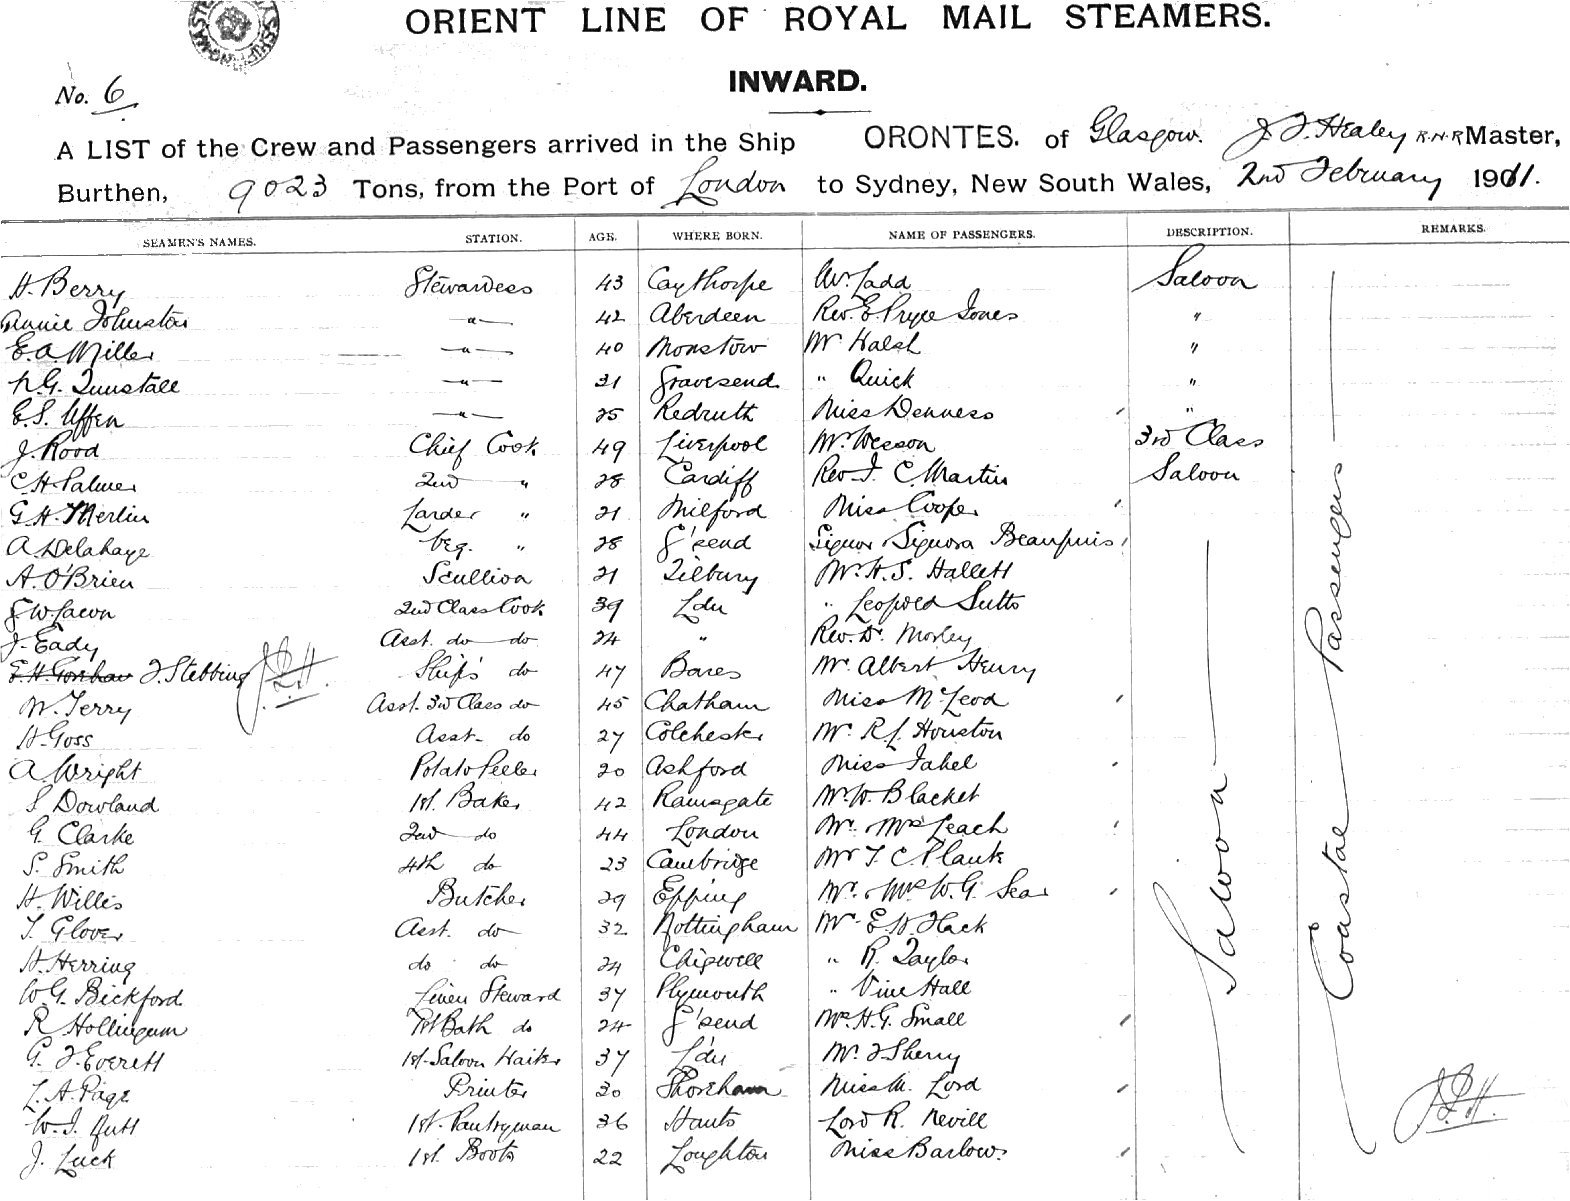 ORIENT LINE OF ROYAL MAIL STEAMERS.
INWARD.
No. 6
A LIST of the Crew and Passengers arrived in the Ship ORONTES. of Glasgow. J. F. Healey R.N.R Master,
Burthen, 9023 Tons, from the Port of London to Sydney, New South Wales, 2nd February 1911.
SEAMEN'S NAMES. STATION. AGE. WHERE BORN. NAME OF PASSENGERS. DESCRIPTION. REMARKS.
H. Berry Stewardess 43 Caythorpe Mr. Ladd Saloon
Annie Johnston —"— 42 Aberdeen Rev. E. Pryce Jones "
E. A. Miller —"— 40 Monstow Mr Halsh "
N. G. Tunstall —"— 31 Gravesend " Quick "
E. S. Uffen —"— 25 Redruth Miss Denness "
J. Rood Chief Cook 49 Liverpool Mr. Wesson 3rd Class
C H Palmer 2nd " 28 Cardiff Rev. J. C. Martin Saloon
G. H. Merlin Larder " 21 Milford Miss Cooper
A Delahaye Veg. " 28 G'send Signor Signora
A. O'Brien Scullion 21 Tilbury Mr. H. S. Hallett
G W Lacon 2nd Class Cook 39 Ldn " Leopold Sutto
J. Eady Asst. do do 24 " Rev. Dr. Morley
E. H. Gorham J. Stebbing J.F.H. Ship's do 47 Bares Mr. Albert Henry
W. Terry Asst. 3rd Class do 45 Chatham Miss McLeod
H. Goss Asst. do 27 Colchester Mr. R L Houston
A. Wright Potato Peeler 20 Ashford Miss Fahel
S Dowland 1st. Baker 42 Ramsgate Mr. W. Blacket
G. Clarke 2nd do 44 London Mr. Mrs Leach
S. Smith 4th do 23 Cambridge Mr T. C. Plank
H. Willis Butcher 29 Epping Mr. Mrs W. G. Sear
T. Glover Asst. do 32 Nottingham Mr. E. W. Flack
H. Herring do do 24 Chigwell " R. Taylor
W. G. Bickford Linen Steward 37 Plymouth " Vine Hall
R Hollingum 1st Bath do 24 G'send Mrs. H. G. Small
G. F. Everett 1st. Saloon Waiter 37 Ldn Mr. J Sherry
L. A. Page Printer 30 Shoreham Miss M. Lord
W. J. Butt 1st. Pantryman 36 Hants Lord R. Nevill
J. Luck 1st. Boots 22 Loughton Miss Barlow.
Saloon
Coastal Passengers
J.F.H.